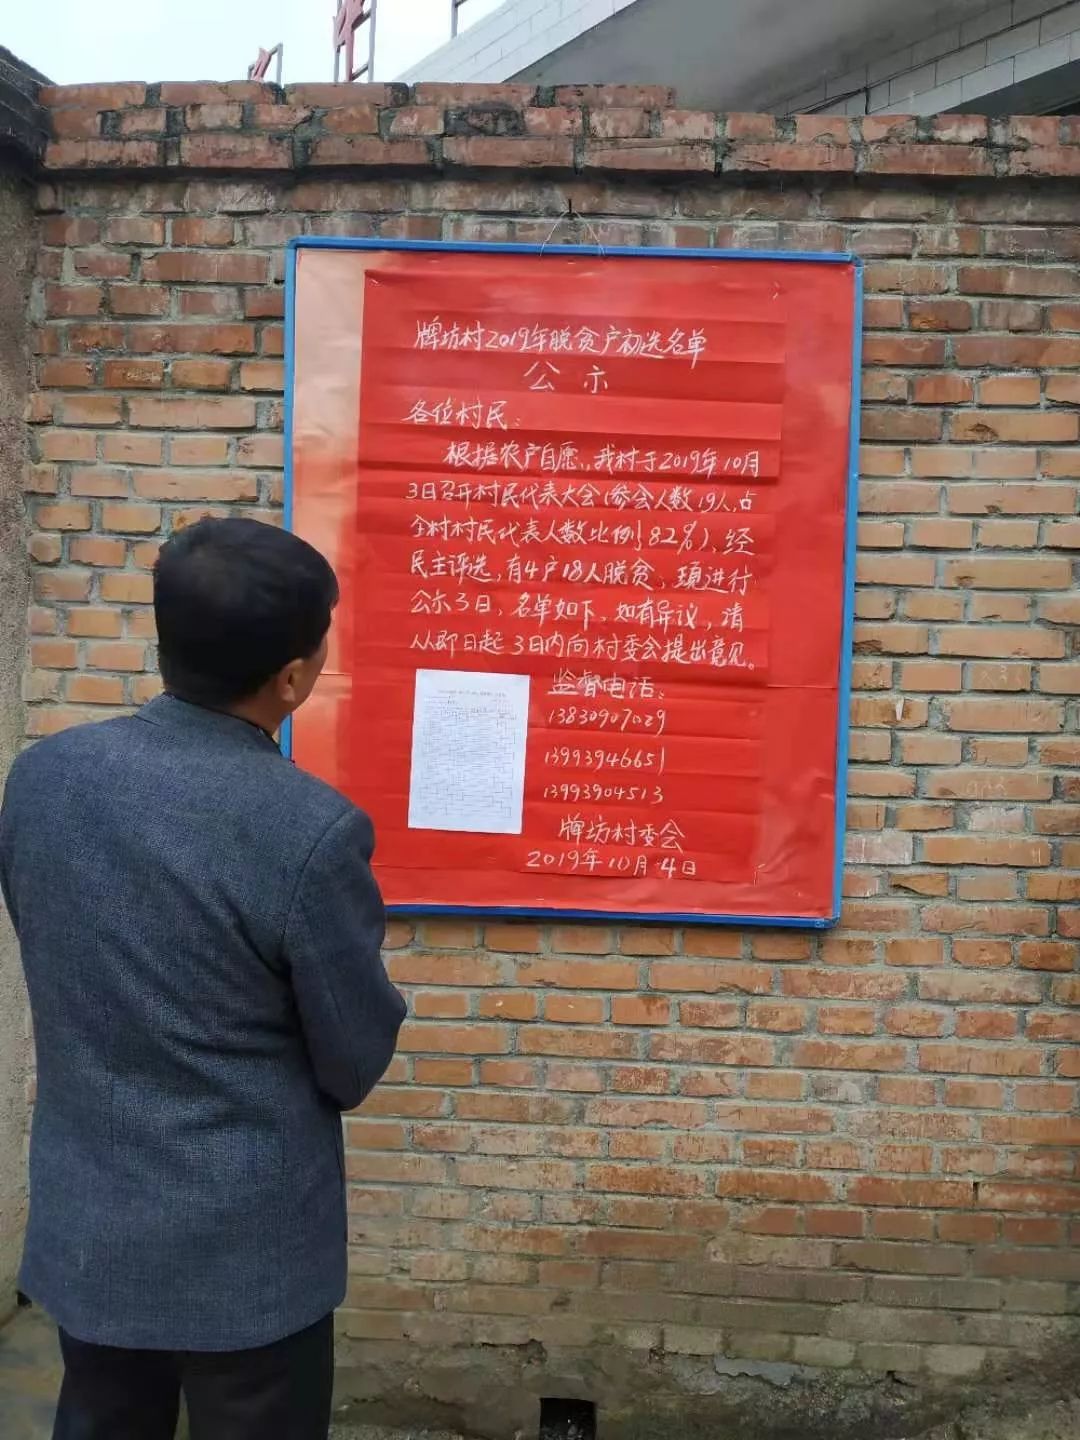 牌坊村2019年脱贫户初选名单
公示
各位村民：
根据农户自愿，我村于2019年10月
3日召开村民代表大会（参会人数19人，占
全村村民代表人数比例82%），经
民主评选，有4户18人脱贫，现进行
公示3日，名单如下，如有异议，请
从即日起3日内向村委会提出意见。
监督电话：
13830907029
13993946651
13993904513
牌坊村委会
2019年10月4日